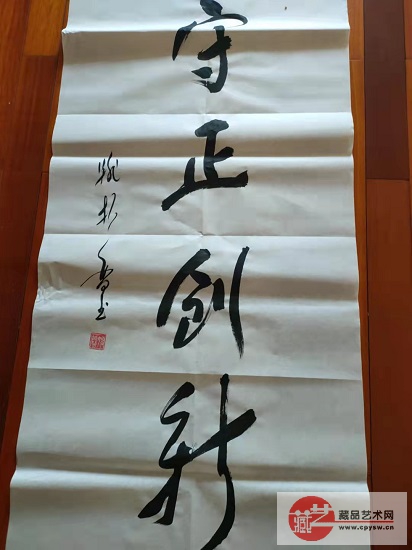 守正创新
书
藏艺
藏品艺术网
www.cpysw.cn